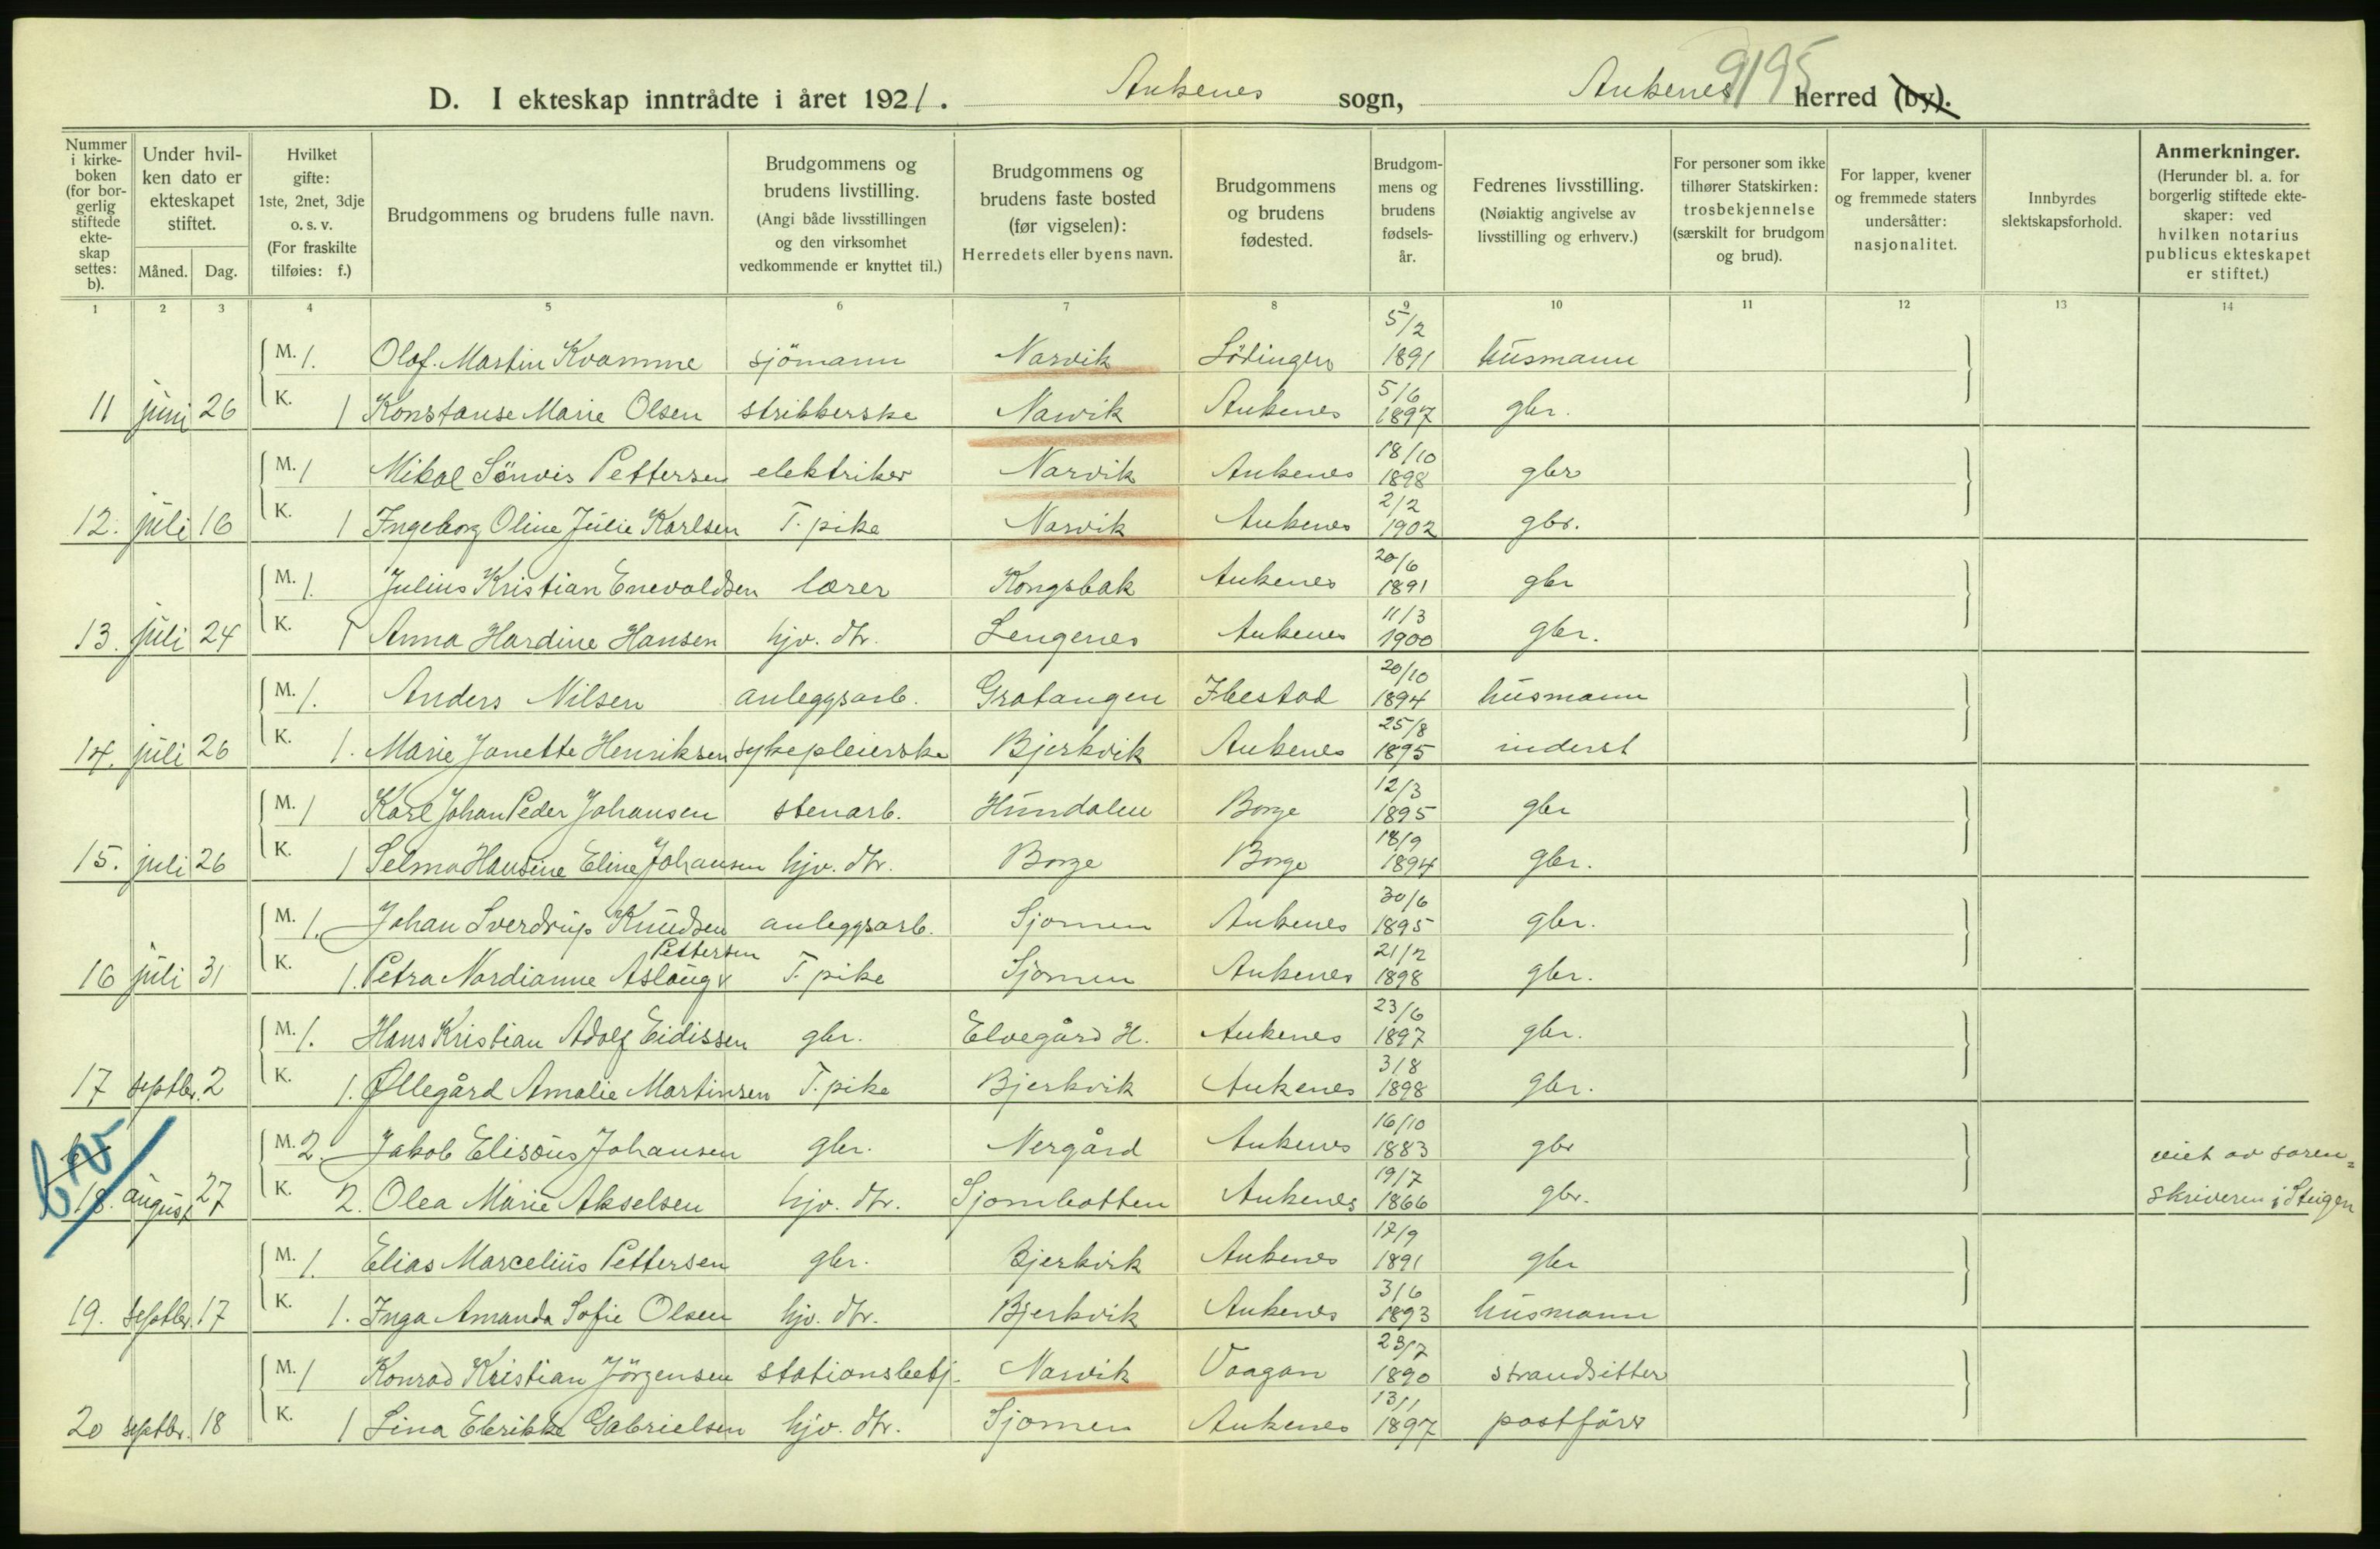 9195
D. I ekteskap inntrådte i året 1921. Ankenes sogn, Ankenes herred (by).
Nummer i kirkeboken (for borgerlig stiftede ekteskap settes: b).
Under hvilken dato er ekteskapet stiftet.
Måned. Dag.
Hvilket gifte: 1ste, 2net, 3dje o. s. v. (For fraskilte tilføies: f.)
Brudgommens og brudens fulle navn.
Brudgommens og brudens livstilling. (Angi både livsstillingen og den virksomhet vedkommende er knyttet til.)
Brudgommens og brudens faste bosted (før vigselen): Herredets eller byens navn.
Brudgommens og brudens fødested.
Brudgommens og brudens fødselsår.
Fedrenes livsstilling. (Nøiaktig angivelse av livsstilling og erhverv.)
For personer som ikke tilhører Statskirken: trosbekjennelse (særskilt for brudgom og brud).
For lapper, kvener og fremmede staters undersåtter: nasjonalitet.
Innbyrdes slektskapsforhold.
Anmerkninger. (Herunder bl. a. for borgerlig stiftede ekteskaper: ved hvilken notarius publicus ekteskapet er stiftet.)
1 2 3 4 5 6 7 8 9 10 11 12 13 14
M. 1. Olaf. Martin Kvamme sjömann Narvik Lödingen 5/2 1891 husmann
11 juni 26 K. 1 Konstanse Marie Olsen strikkerske Narvik Ankenes 5/6 1897 gbr.
M. 1 Mikal Sönvis Pettersen elektriker Narvik Ankenes 18/10 1898 gbr
12. juli 16 K. 1 Ingeborg Oline Julie Karlsen T. pike Narvik Ankenes 2/2 1902 gbr.
M. 1. Julius Kristian Enevoldsen lærer Kongsbak Ankenes 20/6 1891 gbr
13. juli 24 K. 1 Anna Hardine Hansen hjv. dtr. Lengenes Ankenes 11/3 1900 gbr.
M. 1. Anders Nilsen anleggsarb. Gratangen Ibestad 20/10 1894 husmann
14. juli 26 K. 1. Marie Janette Henriksen sykepleierske Bjerkvik Ankenes 25/8 1895 inderst
M. 1 Karl Johan Peder Johansen stenarb. Hundalen Borge 12/3 1895 gbr
15. juli 26 K. 1 Selma Hansine Eline Johansen hjv. dtr. Borge Borge 18/9 1894 gbr.
M. 1. Johan Sverdrup Knudsen anleggsarb. Sjomen Ankenes 30/6 1895 gbr.
Pettersen
16 juli 31 K. 1. Petra Nordianne Aslaug v T. pike Sjomen Ankenes 21/2 1898 gbr.
M. 1. Hans Kristian Adolf Eidissen gbr. Elvegård H. Ankenes 23/6 1897 gbr.
17 septbr. 2 K. 1. Øllegård Amalie Martinsen T. pike Bjerkvik Ankenes 3/8 1898 gbr.
M. 2. Jakob Elisæus Johansen gbr. Nergård Ankenes 16/10 1883 gbr viet av soren=
18. august 27 K. 2. Olea Marie Akselsen hjv. dtr. Sjombotten Ankenes 19/7 1866 gbr. skriveren i Steigen
M. 1. Elias Marcelius Pettersen gbr. Bjerkvik Ankenes 17/9 1891 gbr
19. septbr. 17 K. 1. Inga Amanda Sofie Olsen hjv. dtr. Bjerkvik Ankenes 3/6 1893 husmann
M. 1 Konrad Kristian Jörgensen stationsbetj. Narvik Vaagan 23/7 1890 strandsitter
20 septbr. 18 K. 1 Lina Elerikke Gabrielsen hjv. dtr. Sjomen Ankenes 13/1 1897 postförer